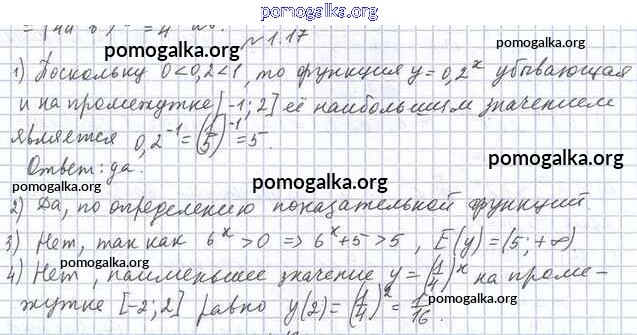 pomogalka.org
№1.17
pomogalka.org pomogalka.org
1) Поскольку 0<0,2<1, то функция y=0,2^x убывающая
и на промежутке [-1; 2] её наибольшим значением
является 0,2^-1=(1/5)^-1=5.
pomogalka.org
Ответ: да.
pomogalka.org
pomogalka.org
2) Да, по определению показательной функций.
3) Нет, так как 6^x>0 => 6^x+5>5, E(y)=(5;+∞)
pomogalka.org
4) Нет, наименьшее значение y=(1/4)^x на проме-
жутке [-2; 2] равно y(2)=(1/4)^2=1/16.
pomogalka.org